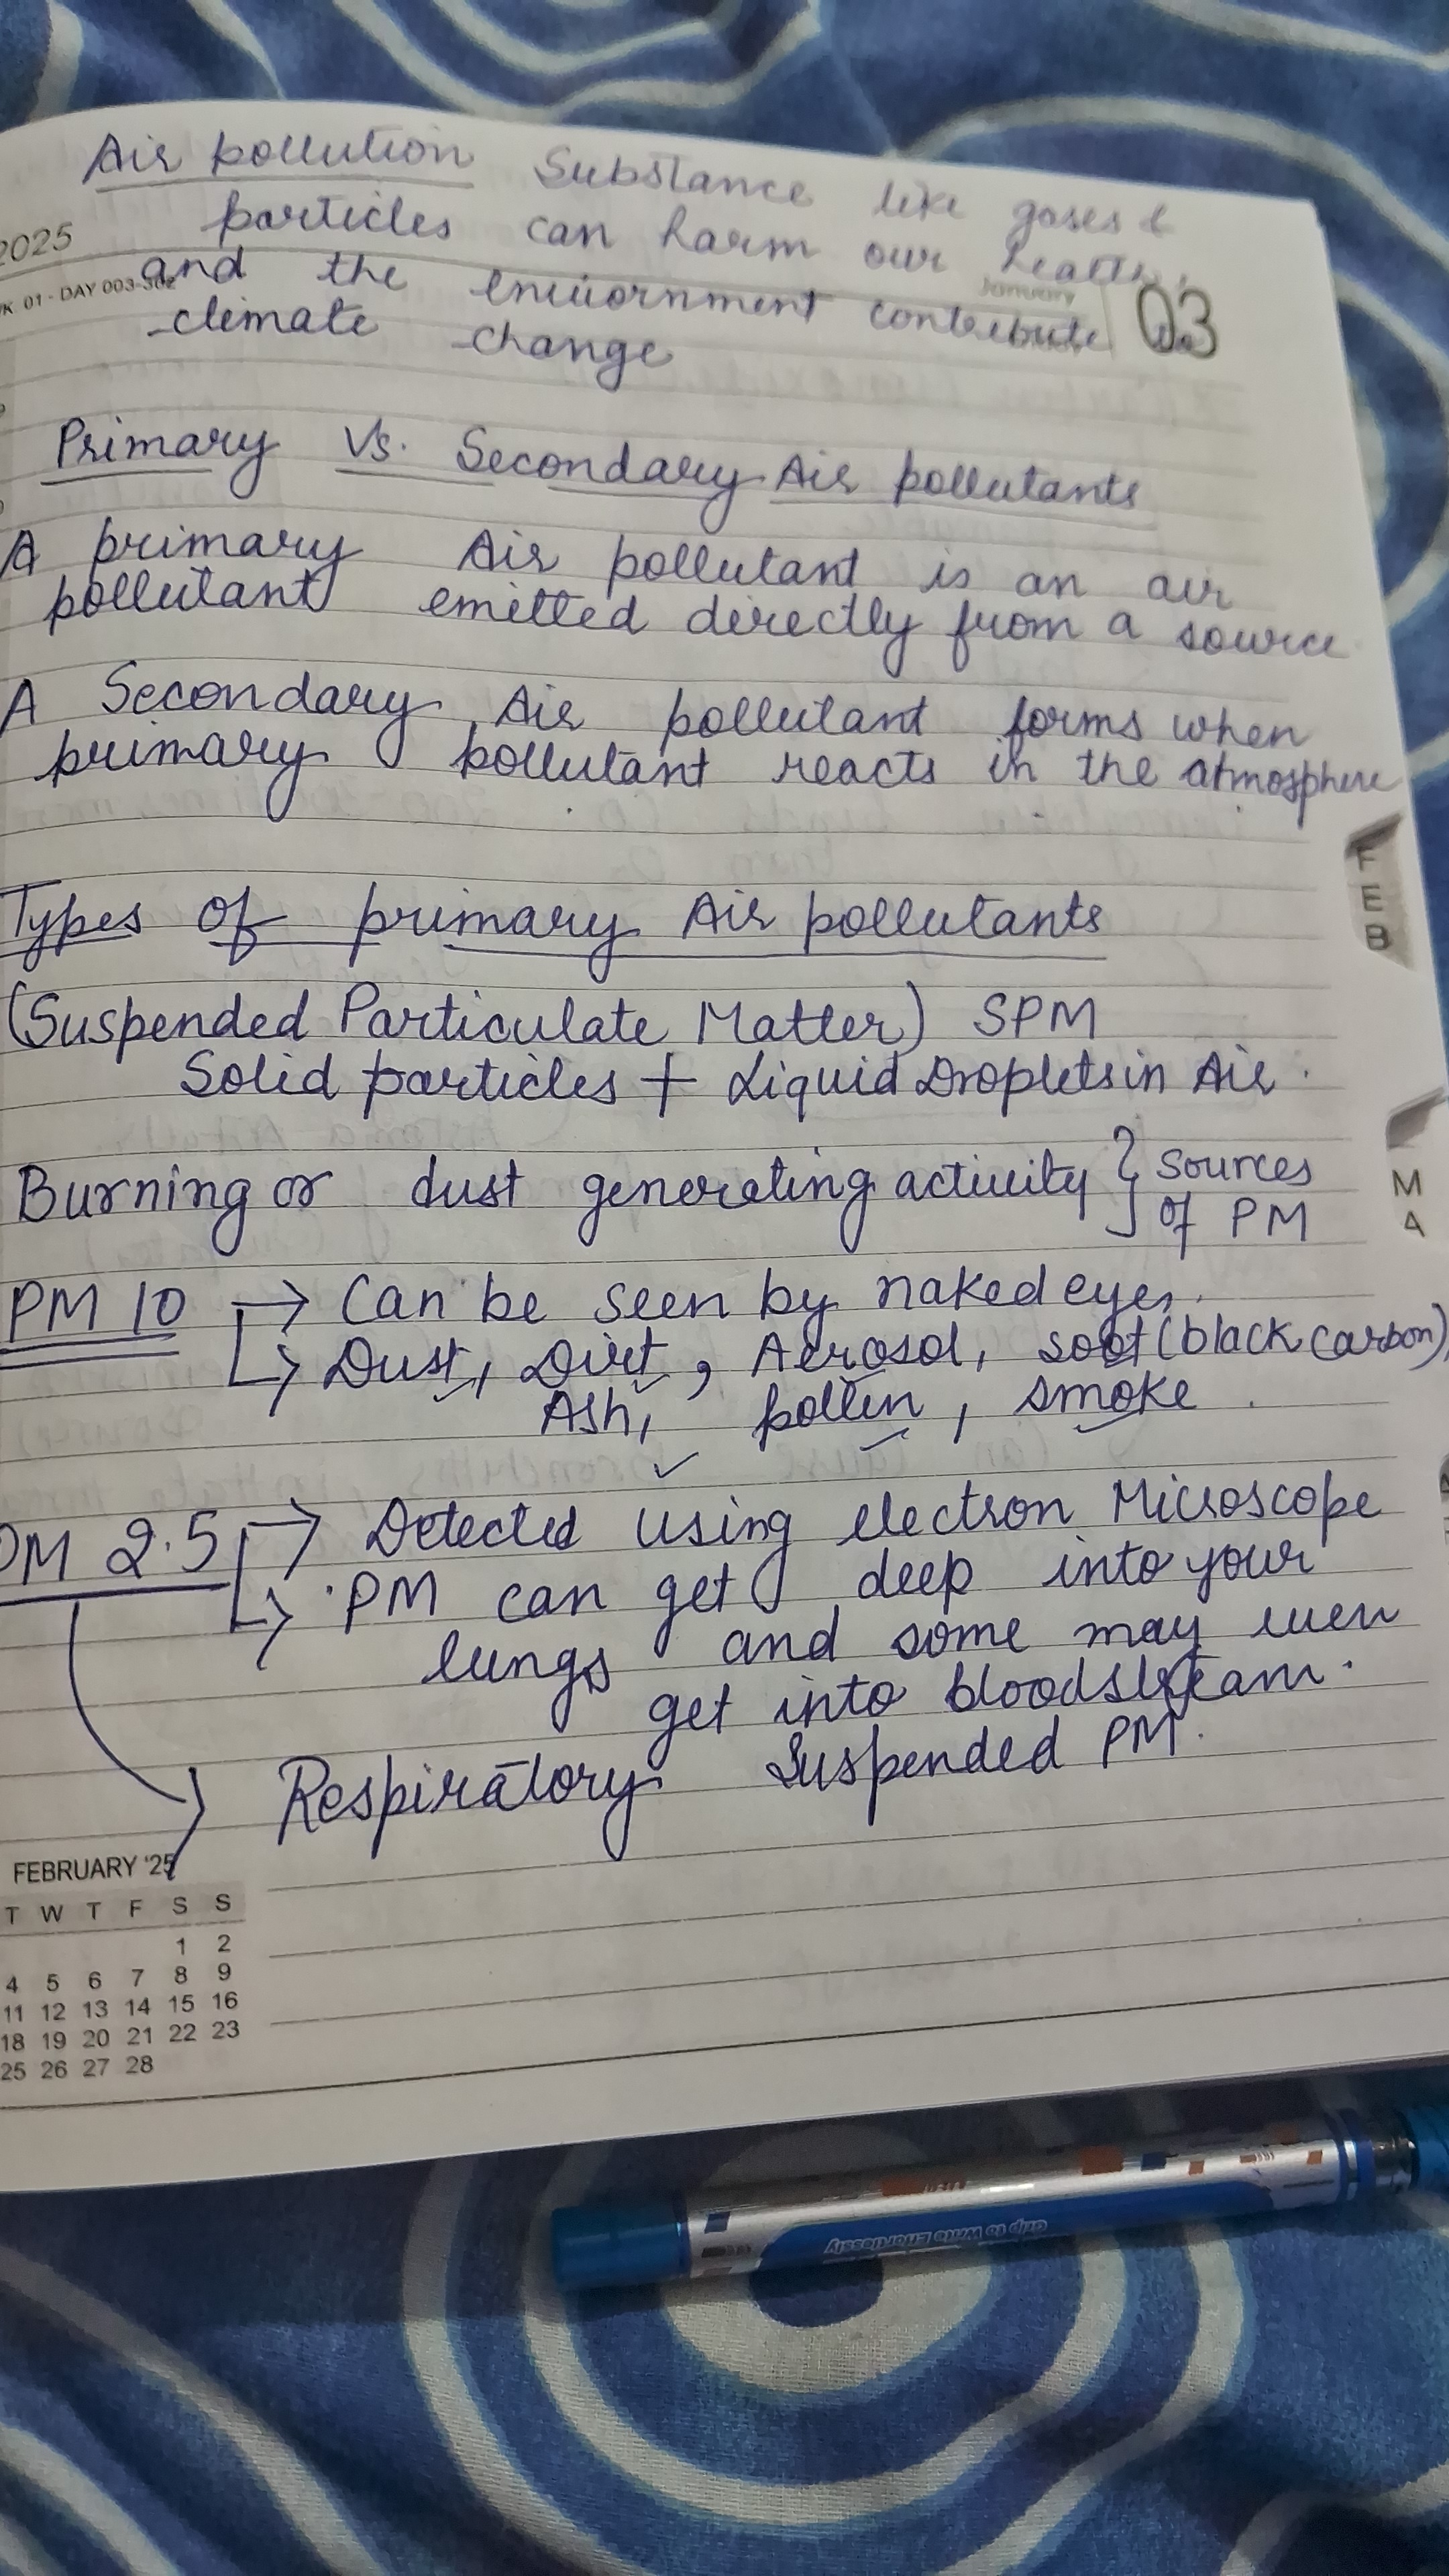 Air pollution Substance like gases &
particles can harm our health,
2025
and the enviornment contribute to
climate change
03
Primary Vs. Secondary Air pollutants
A primary Air pollutant is an air
pollutant emitted directly from a source
A Secondary Air pollutant forms when
primary pollutant reacts in the atmosphere
F
E
B
Types of primary Air pollutants
(Suspended Particulate Matter) SPM
Solid particles + Liquid Droplets in Air.
Burning or dust generating activity } sources
of PM
M
A
PM 10 → Can be seen by naked eyes.
→ Dust, Dirt, Aerosol, soot (black carbon),
Ash, pollen, smoke.
PM 2.5 → Detected using electron Microscope
→ PM can get deep into your
lungs and some may even
get into bloodstream.
→ Respiratory Suspended PM.
FEBRUARY '25
T W T F S S
1 2
4 5 6 7 8 9
11 12 13 14 15 16
18 19 20 21 22 23
25 26 27 28
Grip to Write Effortlessly